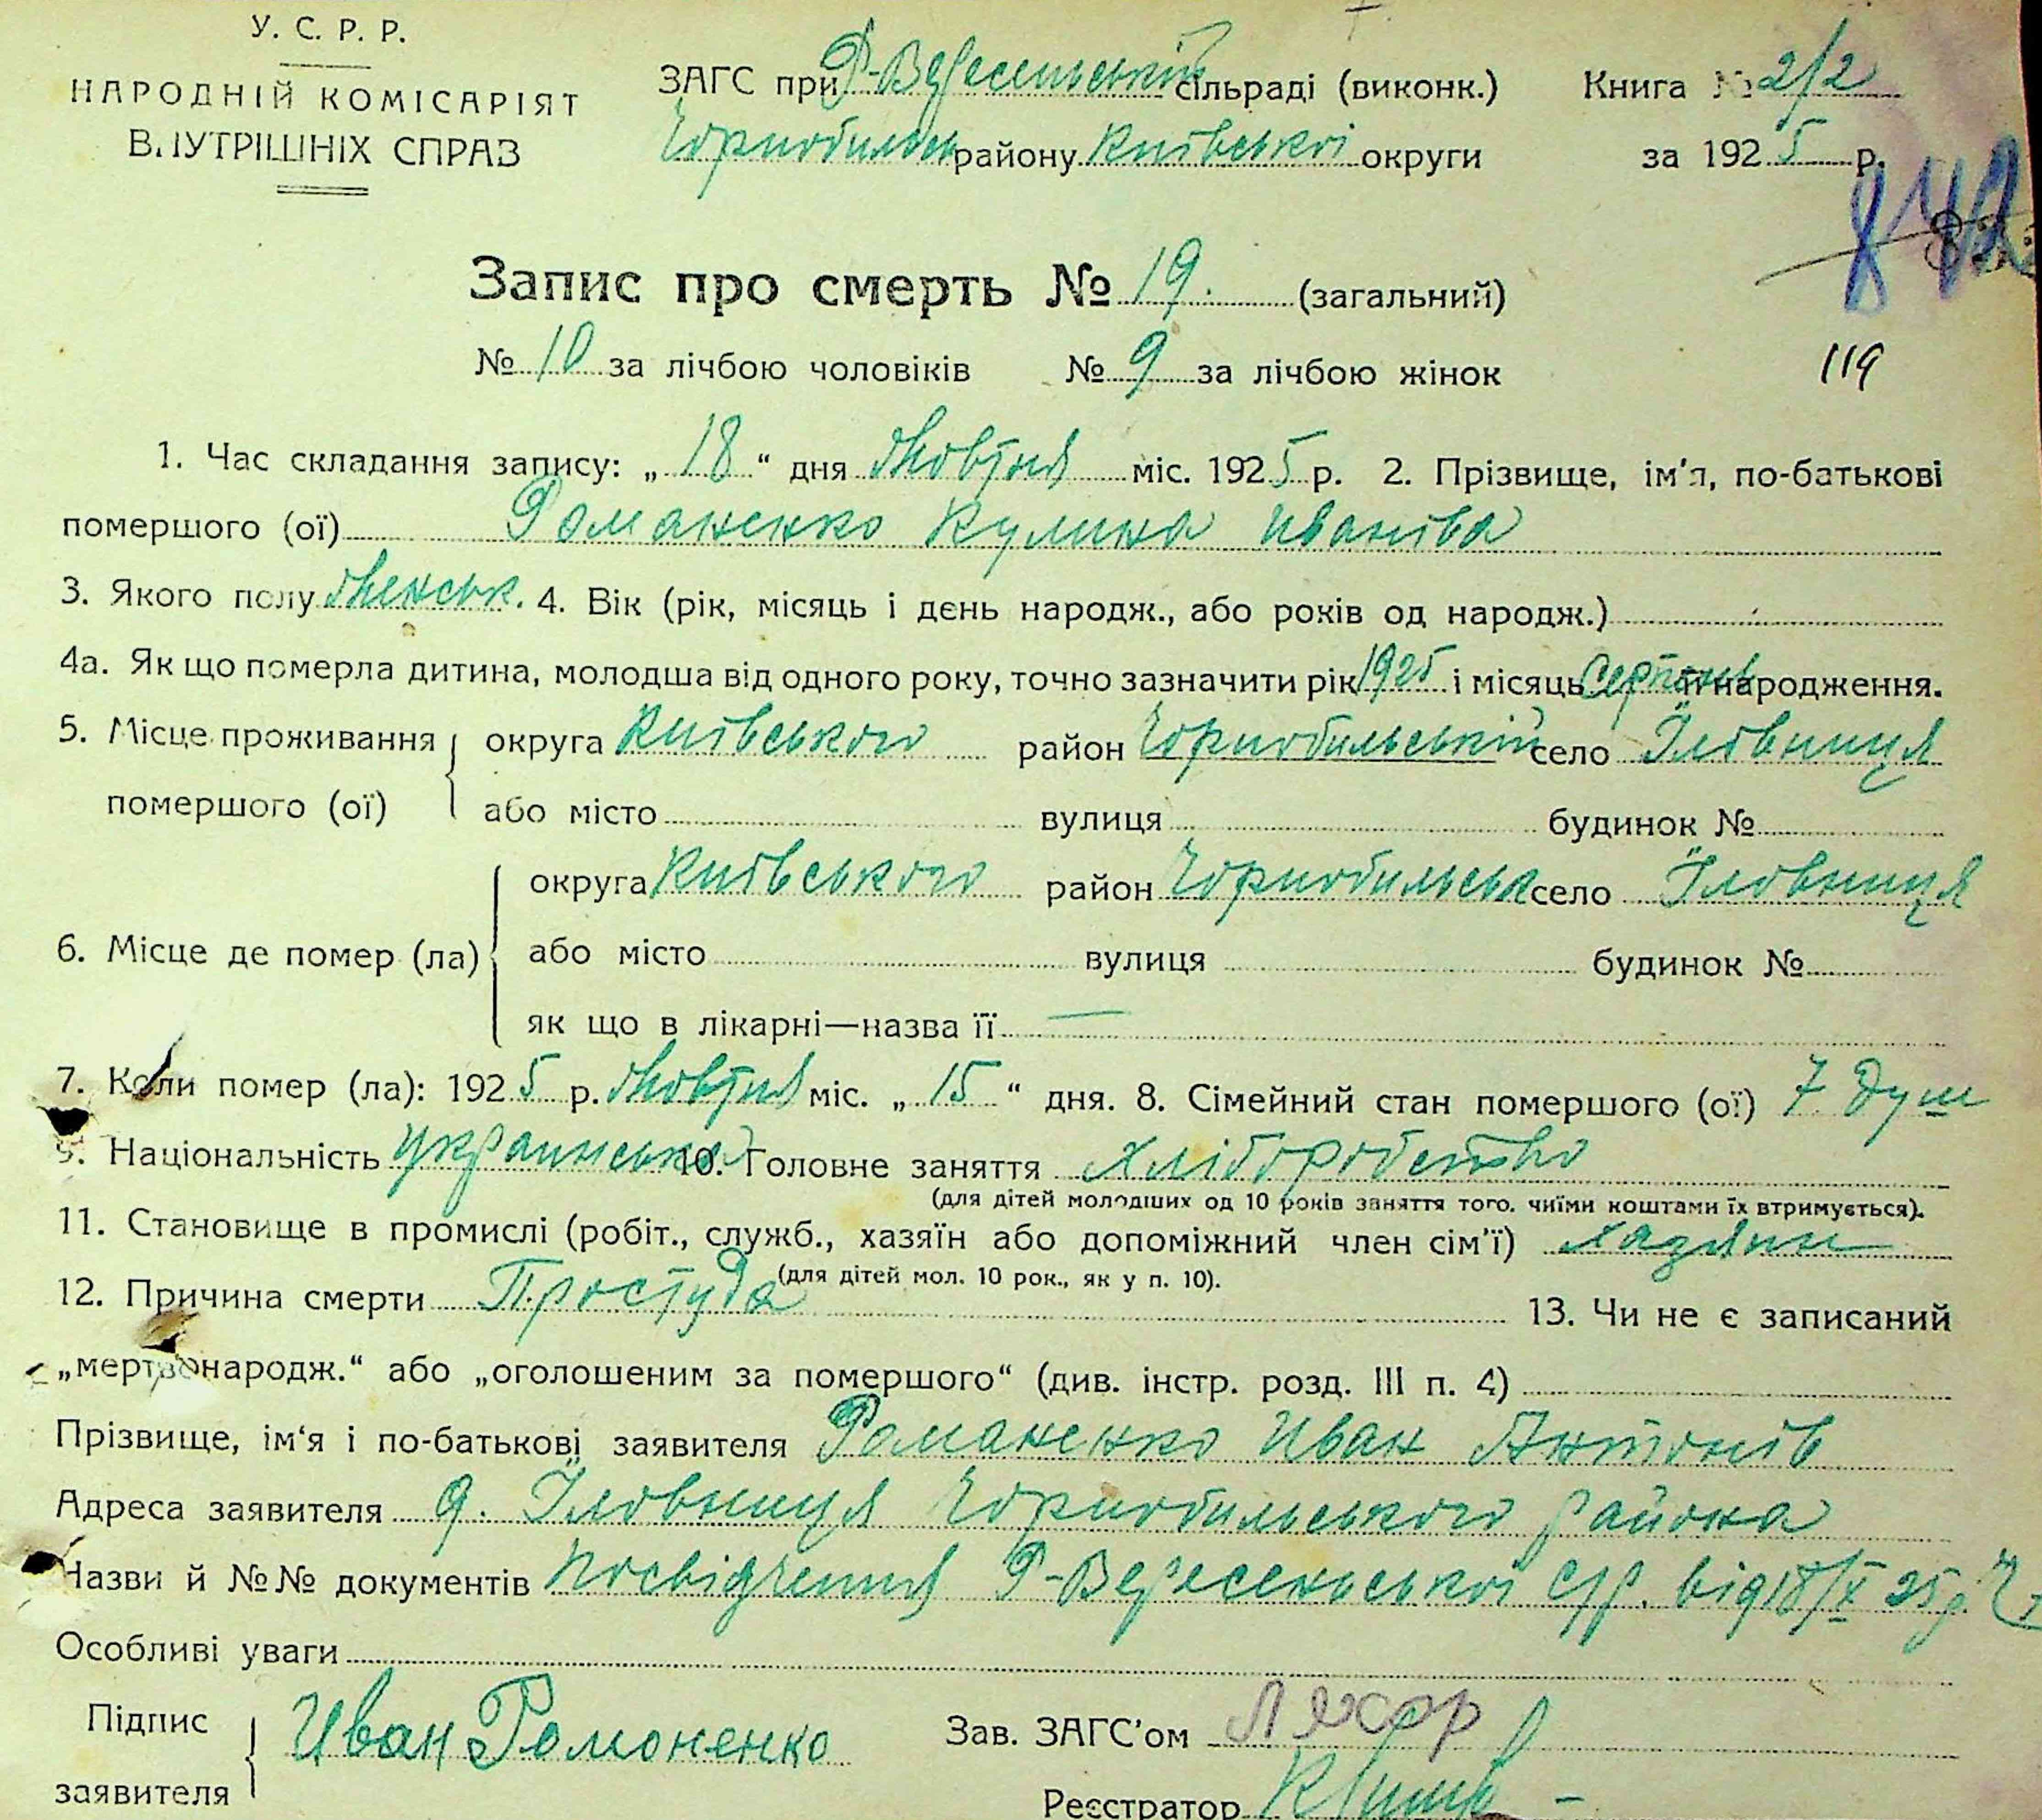 У. С. Р. Р.
НАРОДНІЙ КОМІСАРІЯТ
ВНУТРІШНІХ СПРАВ
ЗАГС при Р-Вересенський сільраді (виконк.)
Чорнобильськ району Київської округи
Книга № 2/2
за 1925 р.
Запис про смерть № 19. (загальний)
№ 10 за лічбою чоловіків № 9 за лічбою жінок
119
1. Час складання запису: „18“ дня Жовтня міс. 1925 р. 2. Прізвище, ім'я, по-батькові
помершого (ої) Романенко Кулина Иваніва
3. Якого полу Женськ. 4. Вік (рік, місяць і день народж., або років од народж.)
4а. Як що померла дитина, молодша від одного року, точно зазначити рік 1925 і місяць Серпень її народження.
5. Місце проживання помершого (ої) округа Київського район Чорнобильський село Іловниця
або місто вулиця будинок №
6. Місце де помер (ла) округа Київського район Чорнобильськ село Іловниця
або місто вулиця будинок №
як що в лікарні—назва її —
7. Коли помер (ла): 1925 р. Жовтня міс. „15“ дня. 8. Сімейний стан помершого (ої) 7 душ
9. Національність Украинська 10. Головне заняття Хліборобство
(для дітей молодших од 10 років заняття того, чиїми коштами їх втримується).
11. Становище в промислі (робіт., служб., хазяїн або допоміжний член сім'ї) хазяин
(для дітей мол. 10 рок., як у п. 10).
12. Причина смерти Простуда 13. Чи не є записаний
„мертвонародж.“ або „оголошеним за помершого“ (див. інстр. розд. III п. 4)
Прізвище, ім‘я і по-батькові заявителя Романенко Иван Антонів
Адреса заявителя д. Іловниця Чорнобильського района
Назви й №№ документів Посвідчення Р-Вересенської с/р. від 18/X 25 р.
Особливі уваги
Підпис заявителя Иван Ромоненко
Зав. ЗАГС'ом
Реєстратор